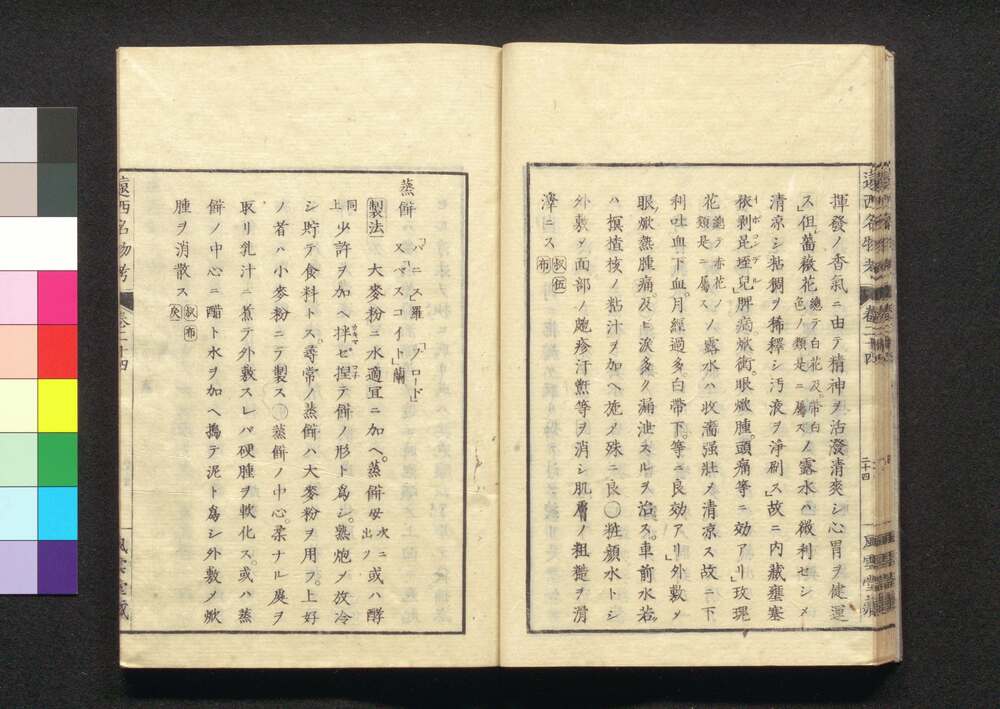 揮發ノ香氣ニ由テ精神ヲ活潑清爽シ心胃ヲ健運
ス但シ薔薇花總テ白花及帶白色ノ類是ニ屬スノ露水ハ微利セシメ
清涼シ粘稠ヲ稀釋シ汚液ヲ淨刷ス故ニ内臟壅塞
依剥昆垤兒脾病㷔衝眼㷔腫頭痛等ニ効アリ」玫瑰
花總テ赤花ノ類是ニ屬スノ露水ハ收濇强壯メ清涼ス故ニ下
利吐血下血月經過多白帶下等ニ良効アリ」外敷メ
眼㷔熱腫痛及ヒ淚多ク漏泄スルヲ治ス車前水若ク
ハ榠樝核ノ粘汁ヲ加ヘ施メ殊ニ良○粧顔水トシ
外敷メ面部ノ皰疹汗㿀等ヲ消シ肌膚ノ粗糙ヲ滑
澤ニス 叔伍 布
遠西名物考 卷二十四
二十四
風雲堂藏
蒸餅
製法 大麥粉ニ水適宜ニ加ヘ蒸餅母次ニ出ツ或ハ酵
同上少許ヲ加ヘ拌セ捏テ餅ノ形ト爲シ熟炮メ放冷
シ貯テ食料トス尋常ノ蒸餅ハ大麥粉ヲ用フ上好
ノ者ハ小麥粉ニテ製ス○蒸餅ノ中心柔ナル處ヲ
取リ乳汁ニ煮テ外敷スレバ硬腫ヲ軟化ス或ハ蒸
餅ノ中心ニ醋ト水ヲ加ヘ搗テ泥ト爲シ外敷メ㷔
腫ヲ消散ス 叔布
遠西名物考 卷二十四
風雲堂藏